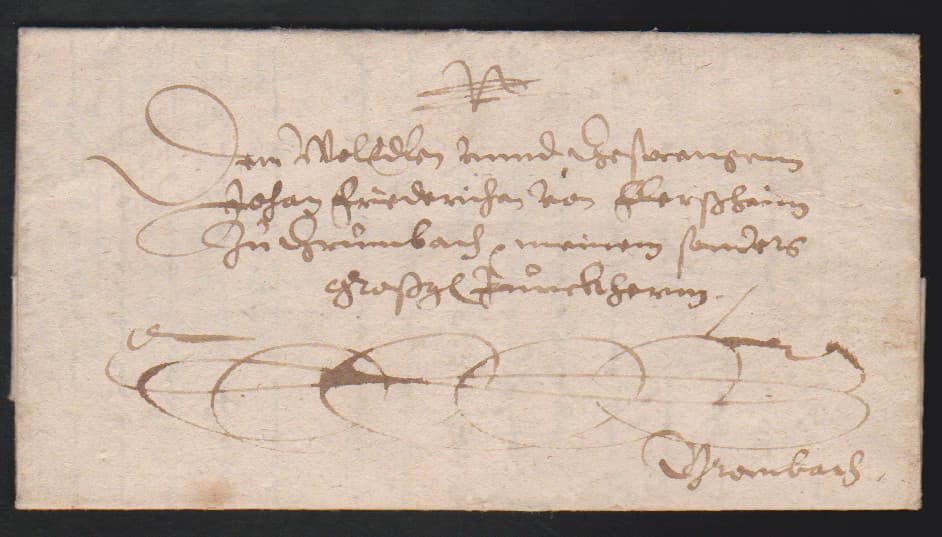 Dem WolEdlen vnnd Gestrengenn
Johan Friederichen von Flerßheim
Zu Grumbach, meinem sonders
großgl Junckherrn.
Grombach.